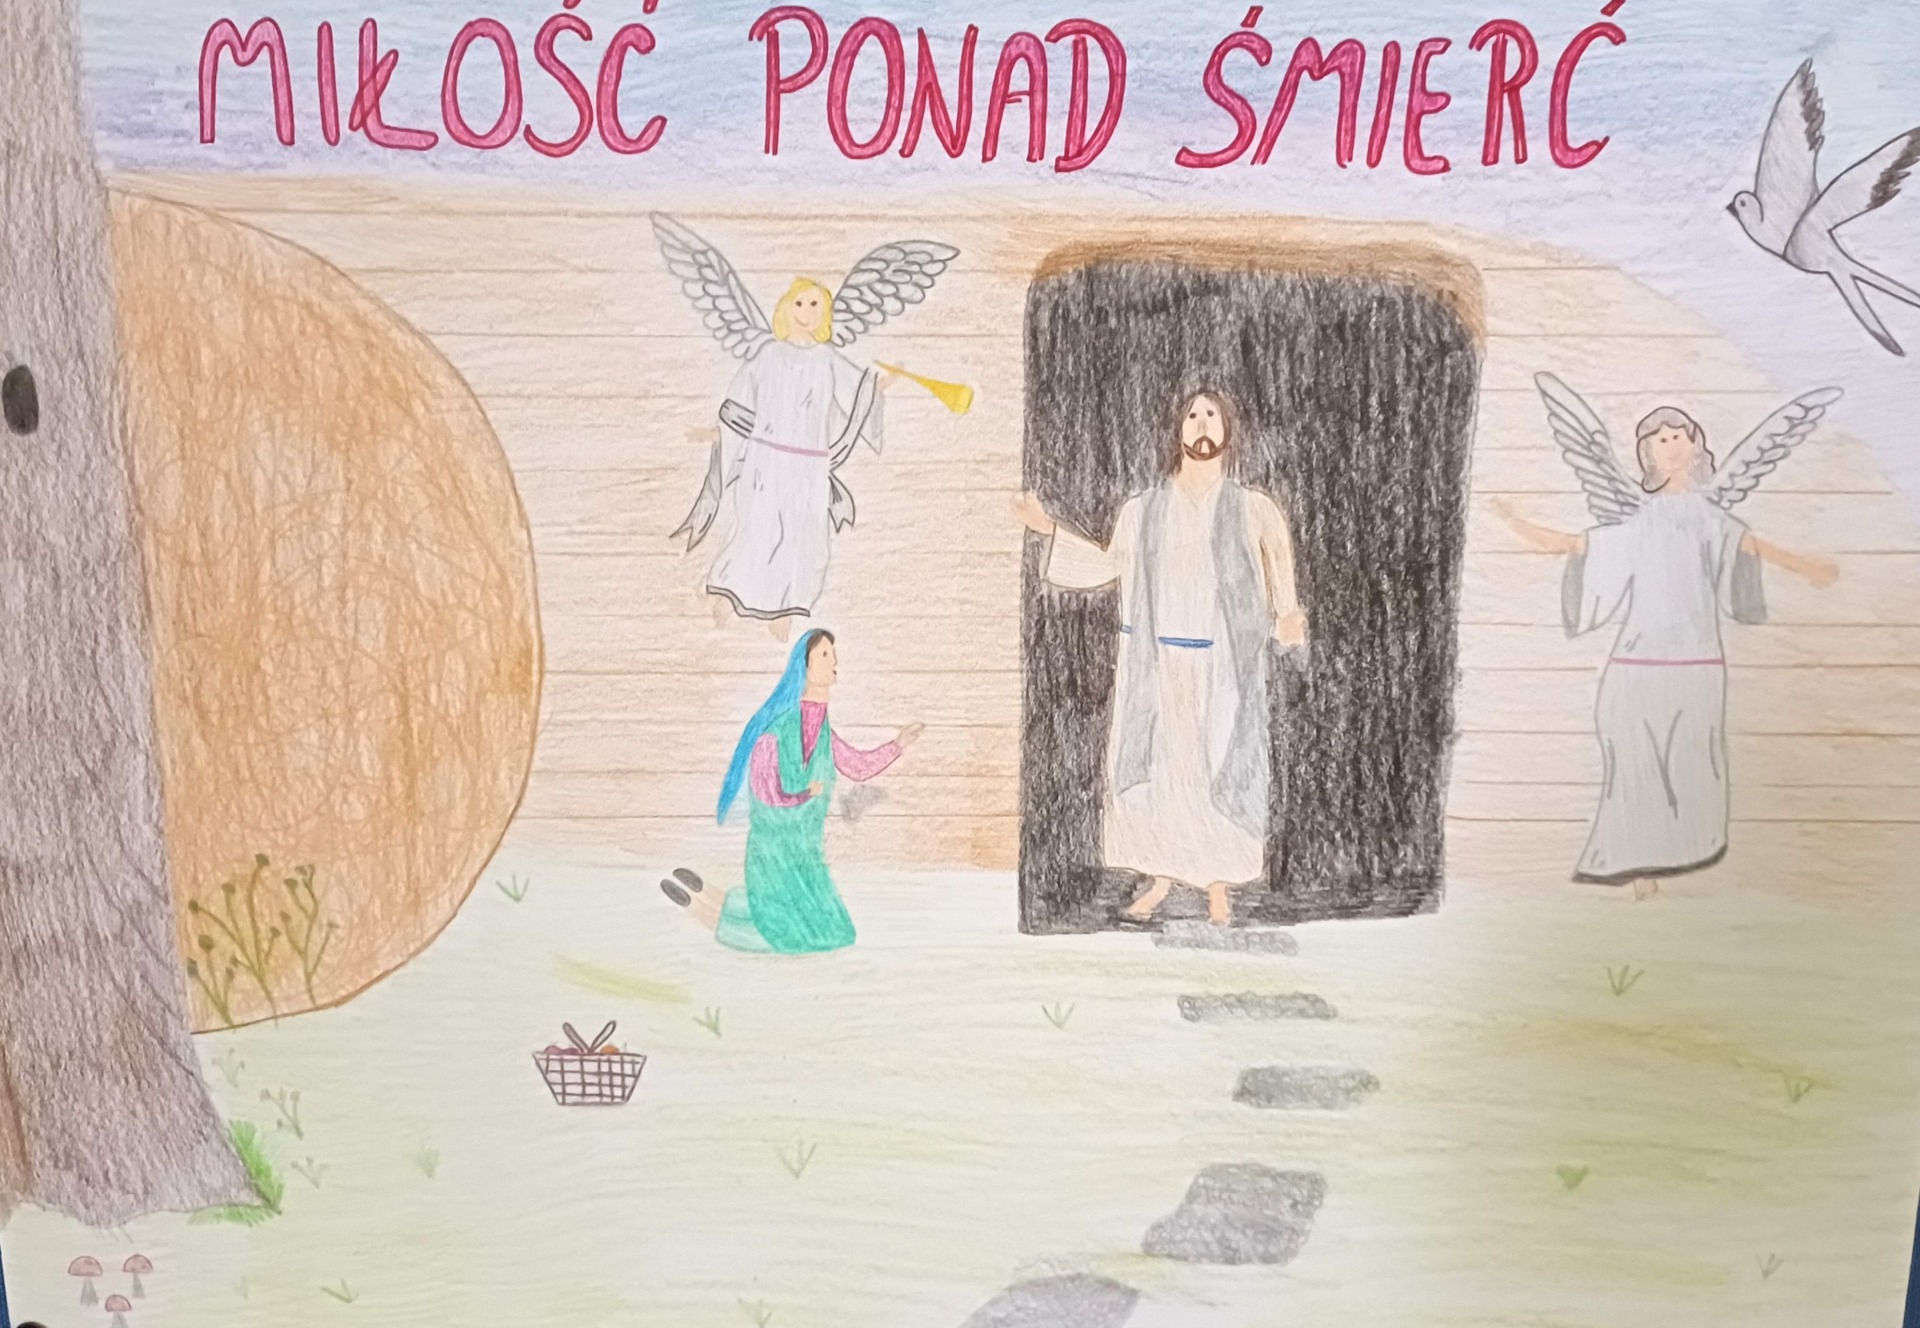 MIŁOŚĆ PONAD ŚMIERĆ